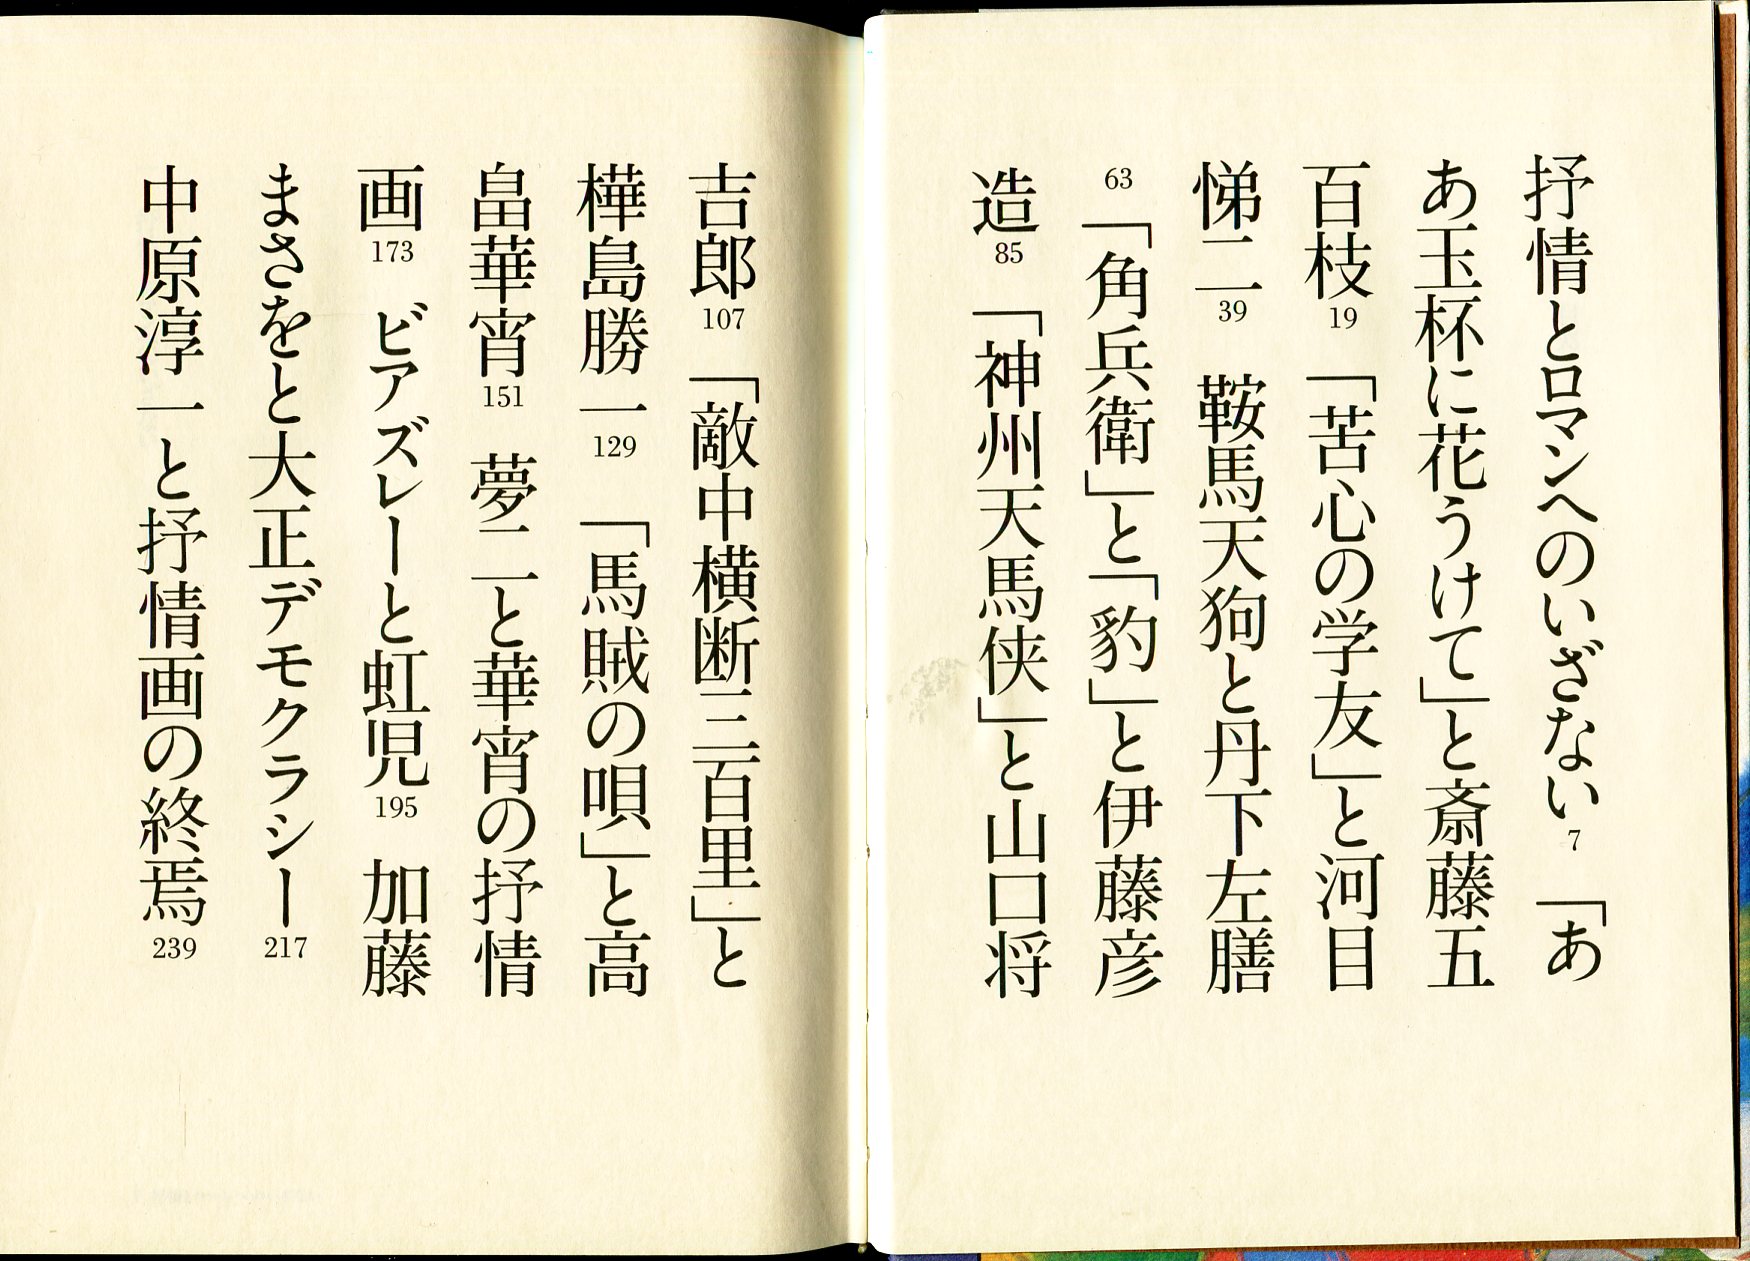 抒情とロマンへのいざない 7 「あ
あ玉杯に花うけて」と斎藤五
百枝 19 「苦心の学友」と河目
悌二 39 鞍馬天狗と丹下左膳
63 「角兵衛」と「豹」と伊藤彦
造 85 「神州天馬侠」と山口将
吉郎 107 「敵中横断三百里」と
樺島勝一 129 「馬賊の唄」と高
畠華宵 151 夢二と華宵の抒情
画 173 ビアズレーと虹児 195 加藤
まさをと大正デモクラシー 217
中原淳一と抒情画の終焉 239